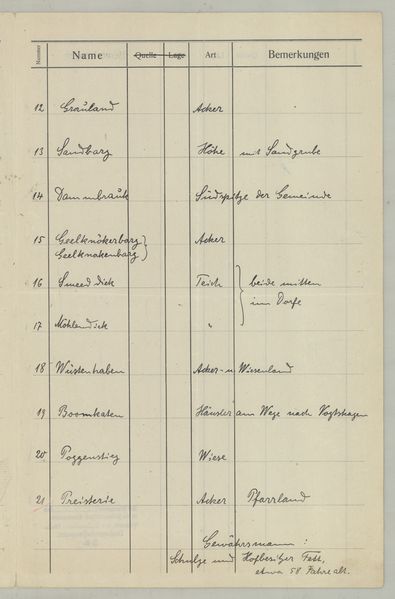 Nummer Name Quelle Lage Art Bemerkungen
12 Grauland Acker
13 Sandbarg Höhe mit Sandgrube
14 Dammbrauk Südspitze der Gemeinde
15 Geelknökerbarg Acker
Geelknakenbarg
16 Smeed diek Teich beide mitten
im Dorfe
17 Möhlendiek "
18 Wüstenhaben Acker- u Wiesenland
19 Boomkaten Häusler am Wege nach Vogtshagen
20 Poggenstieg Wiese
21 Preisterie Acker Pfarrland
Gewährsmann:
Schulze und Hofbesitzer
etwa 58 Jahre alt.